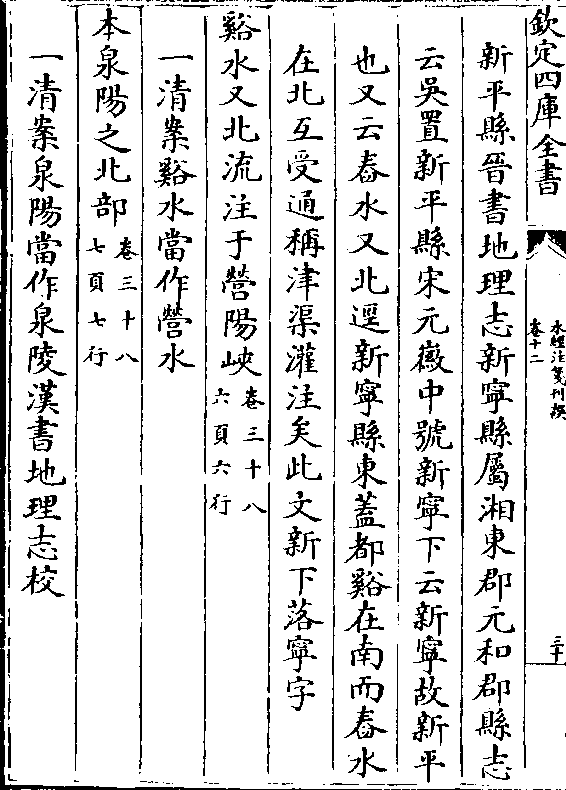 欽定四庫全書
水經注箋刊誤
卷十二
三十
新平縣晉書地理志新寧縣屬湘東郡元和郡縣志
云吳置新平縣宋元徽中號新寧下云新寧故新平
也又云舂水又北逕新寧縣東蓋都谿在南而舂水
在北互受通稱津渠灌注矣此文新下落寧字
谿水又北流注于營陽峽卷三十八六頁六行
一清案谿水當作營水
本泉陽之北部卷三十八七頁七行
一清案泉陽當作泉陵漢書地理志校